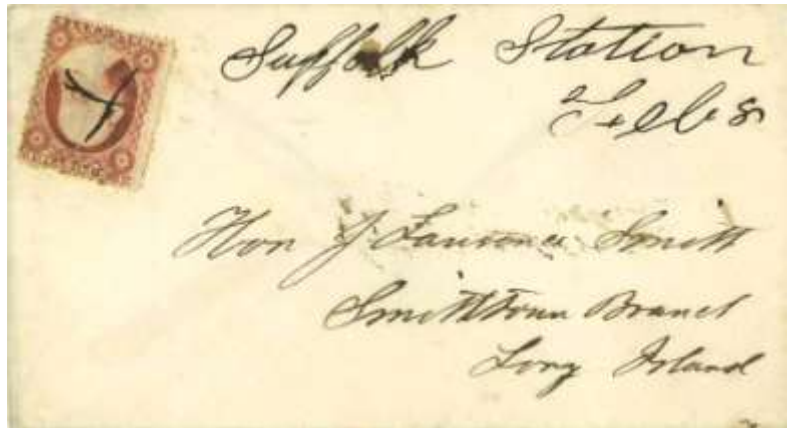 Suffolk Station
Feb 8
Hon J Lawrence Smith
Smithtown Branch
Long Island